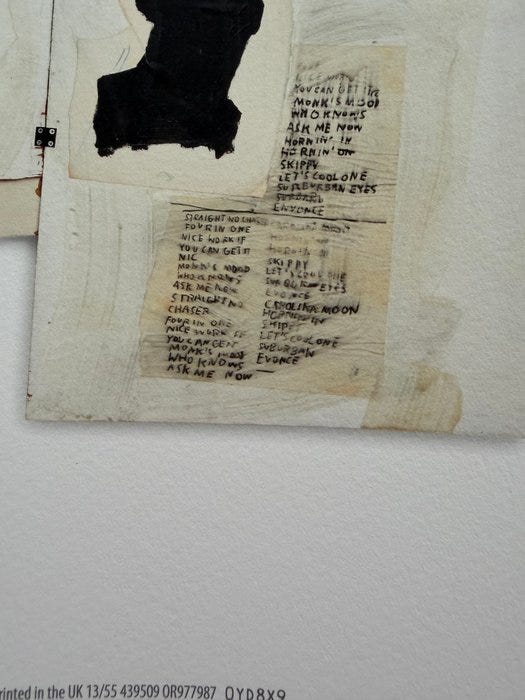 NICE WORK
YOU CAN GET IT
MONK'S MOOD
WHO KNOWS
ASK ME NOW
HORNIN' IN
HORNIN' ON
SKIPPY
LET'S COOL ONE
SUBURBAN EYES
EVONCE
STRAIGHT NO CHAS
FOUR IN ONE
NICE WORK IF
YOU CAN GET IT
NIC
MONK'S MOOD
WHO KNOWS
ASK ME NOW
STRAIGHT NO
CHASER
FOUR IN ONE
NICE WORK IF
YOU CAN GET
MONK'S MOOD
WHO KNOWS
ASK ME NOW
SKIPPY
LET'S COOL ONE
SUBURB EYES
EVONCE
CAROLINA MOON
HORNIN' IN
SKIPP
LET'S COOL ONE
SUBURBAN
EVONCE
rinted in the UK 13/55 439509 OR977987 QYD8X9